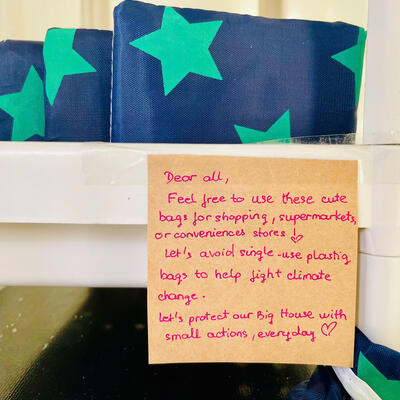 Dear all,
Feel free to use these cute
bags for shopping, supermarkets,
or conveniences stores! ♡
Let's avoid single-use plastic
bags to help fight climate
change.
Let's protect our Big House with
small actions, everyday ♡